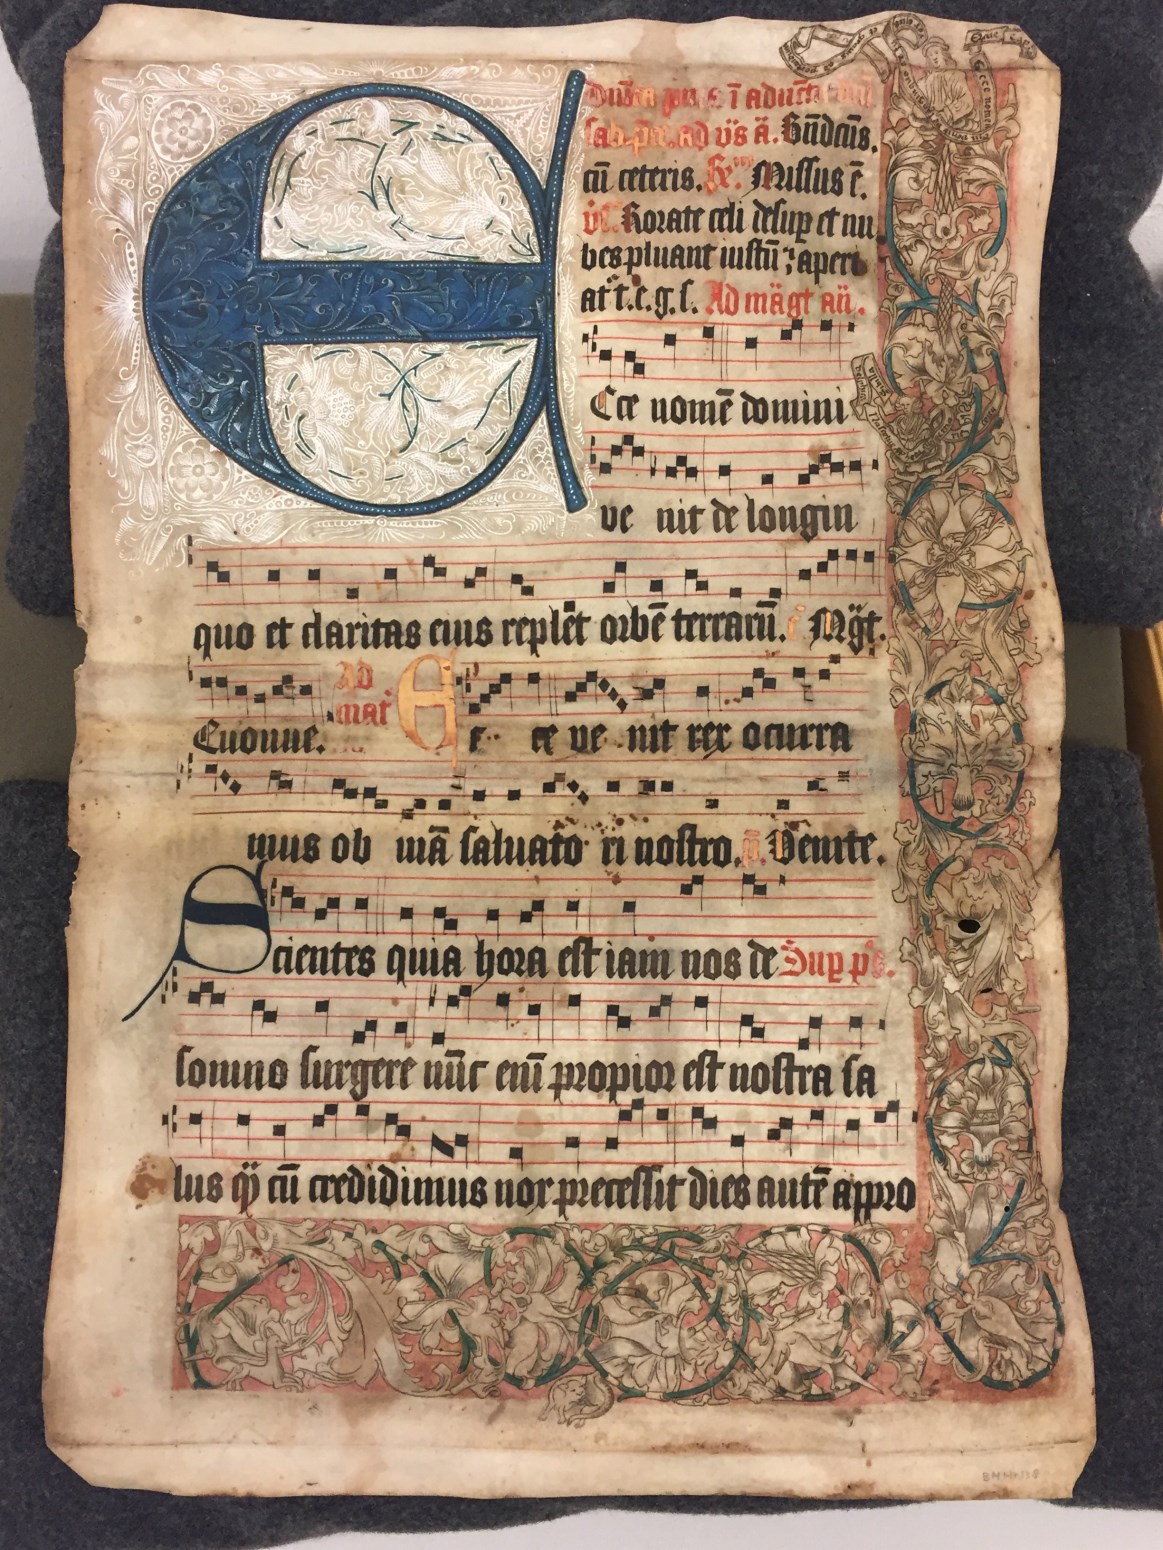 Dn̄ica pri᷒ ī aduētu dn̄i
sab. p̄c. ad v̄s ā. Bn̄dctus.
cū ceteris. Rx. Missus ē.
v̄s Rorate celi desuꝑ et nu
bes pluant iustū ⁊ aperi
at᷑ t. e. g. s. Ad mägt aū.
Ecce nomē domini
ve nit de longin
quo et claritas eius replet orbē terrarū. Mg̈t.
Euouae. Ad
mat E c ce ve nit rex ocurra
mus ob uiā saluato ri nostro. Venite.
Scientes quia hora est iam nos de Suꝑ ps.
somno surgere nūc enī propior est nostra sa
lus q̈ cū credidimus nox precessit dies autē appro